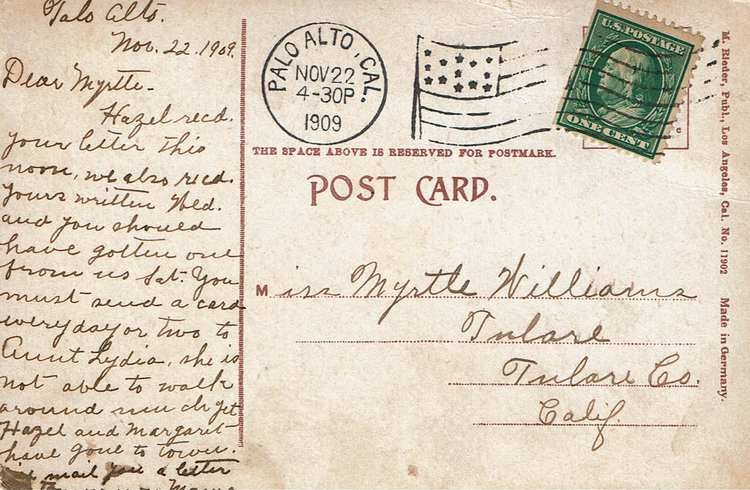 Palo Alto.
Nov. 22. 1909.
Dear Myrtle-
Hazel recd.
your letter this
noon, we also recd.
yours written Wed.
and you should
have gotten one
from us Sat. You
must send a card
every day or two to
Aunt Lydia, she is
not able to walk
around much yet
Hazel and Margaret
have gone to town.
mail you a letter
PALO ALTO, CAL.
NOV 22
4-30P
1909
U.S. POSTAGE
ONE CENT
THE SPACE ABOVE IS RESERVED FOR POSTMARK.
POST CARD.
Miss Myrtle Williams
Tulare
Tulare Co.
Calif.
M. Rieder, Publ., Los Angeles, Cal. No. 11902 Made in Germany.